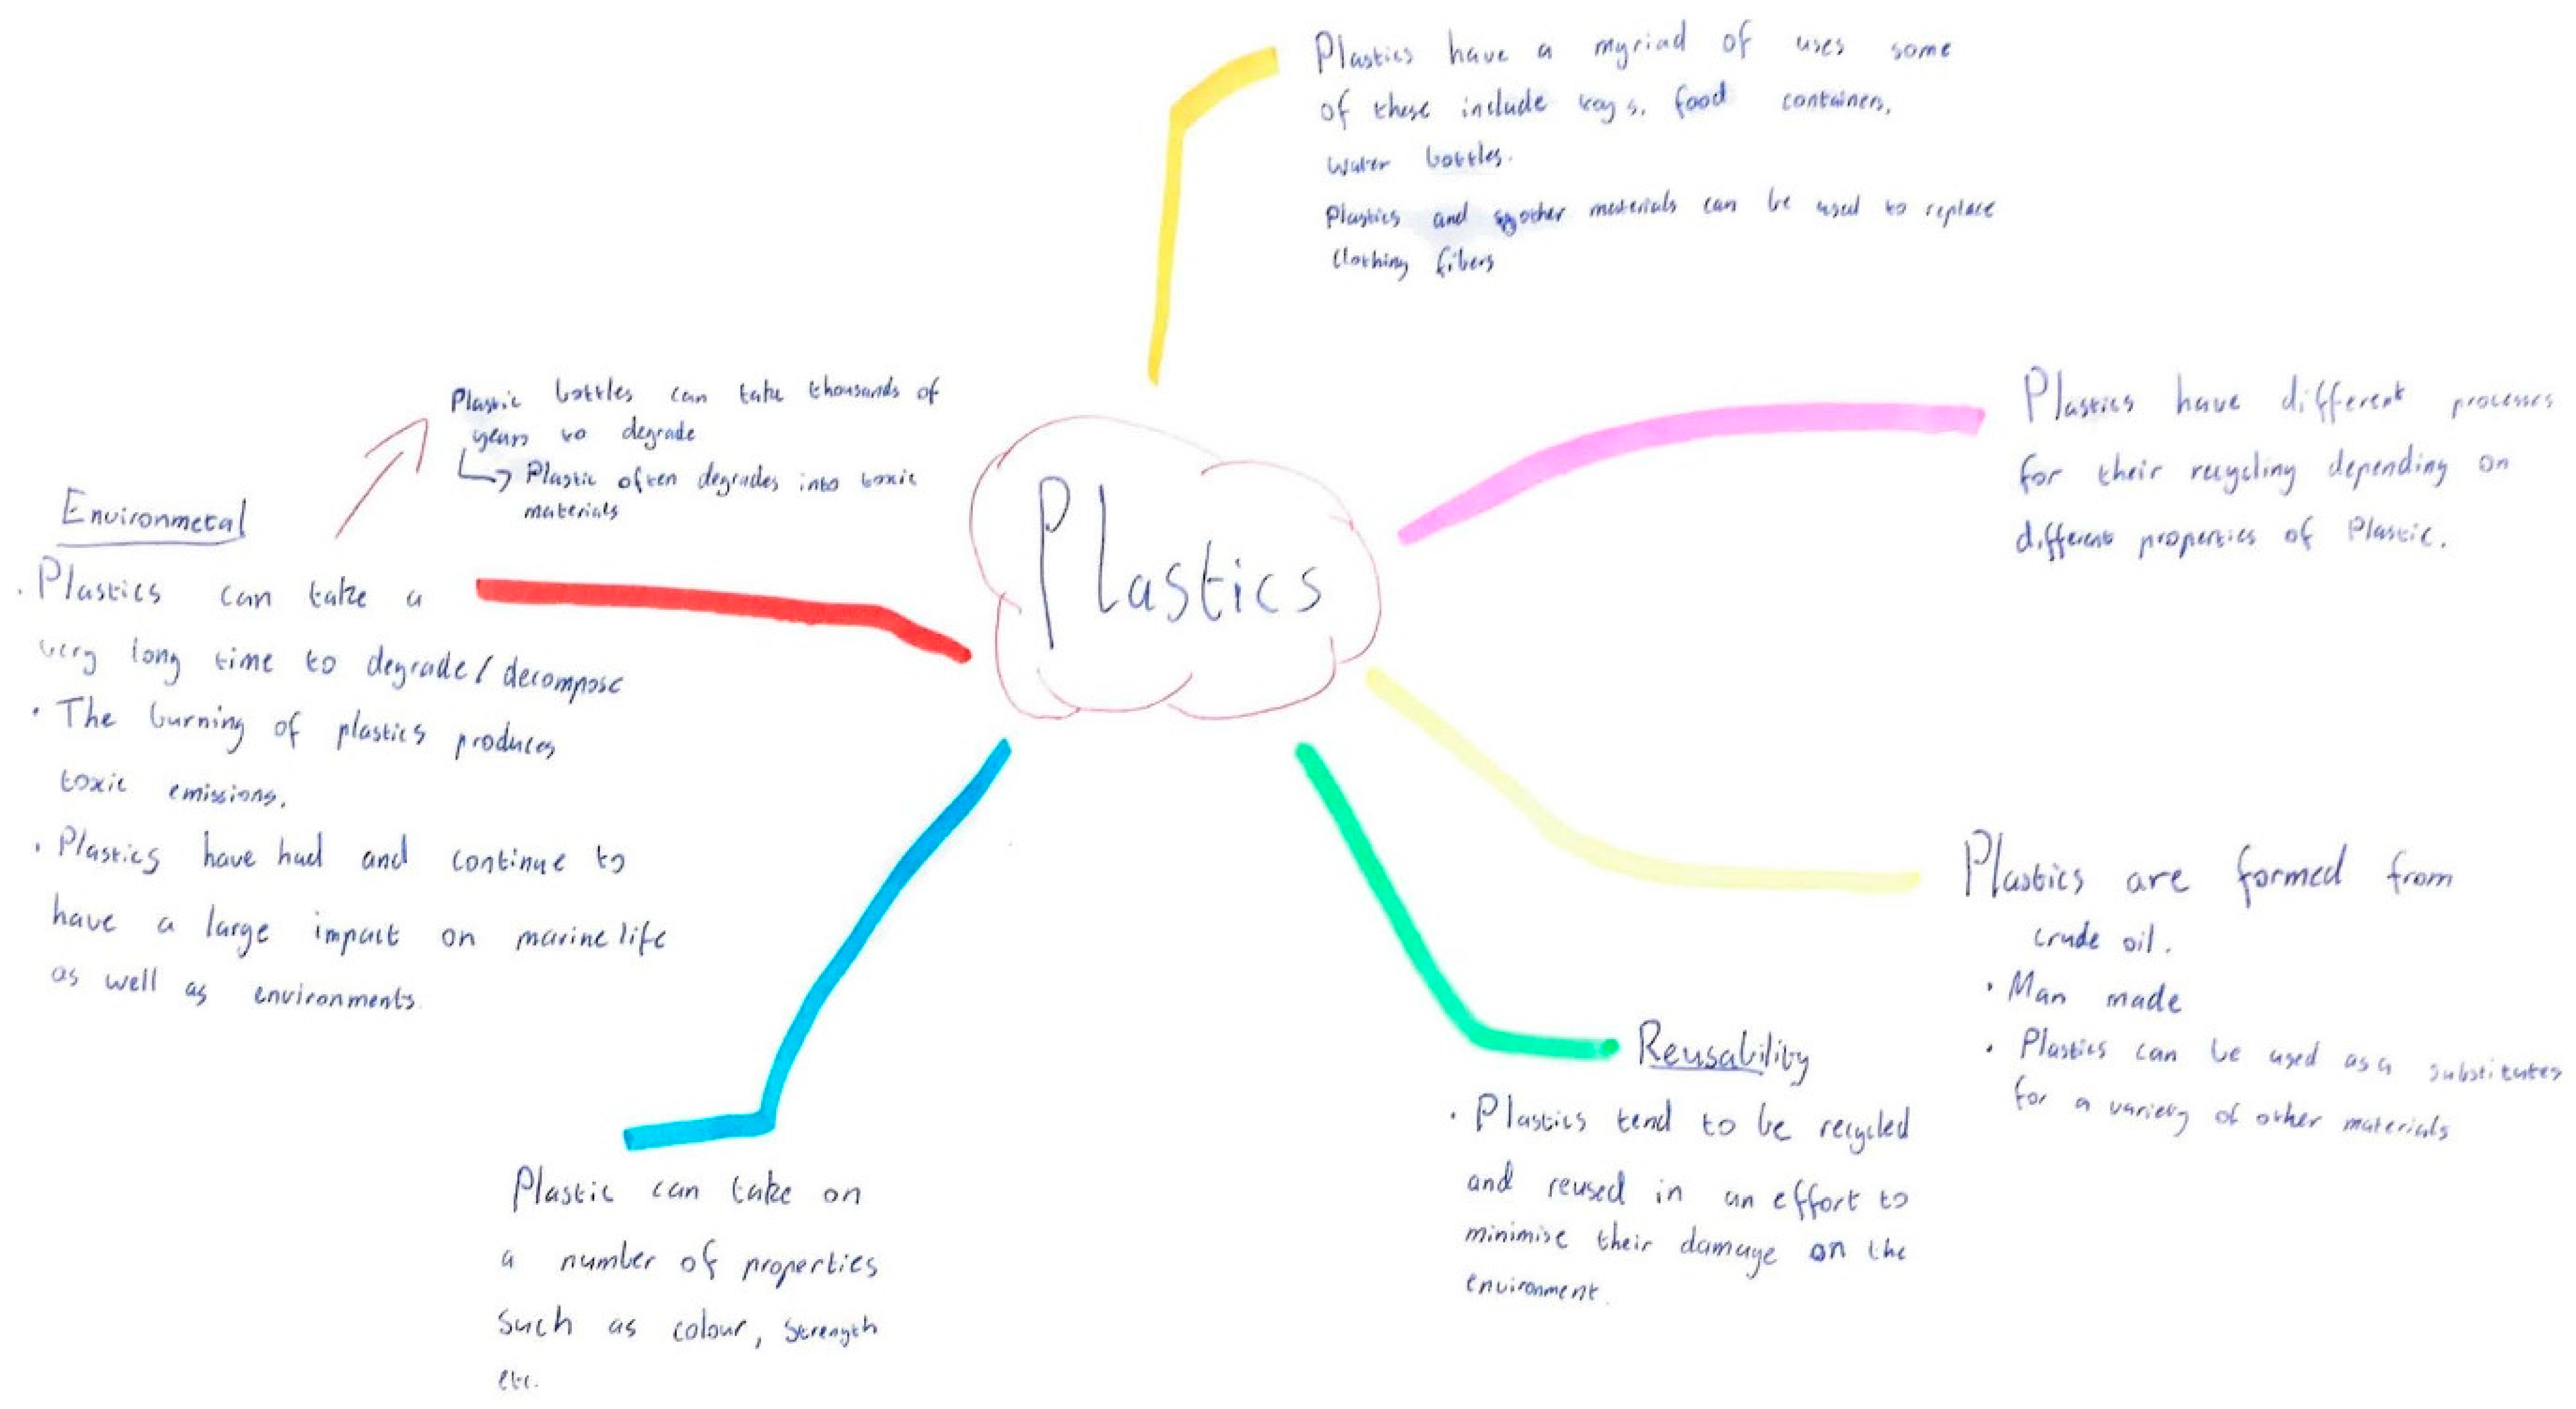 Plastics have a myriad of uses some
of these include toys, food containers,
water bottles.
Plastics and other materials can be used to replace
clothing fibers
Plastic bottles can take thousands of
years to degrade
Plastic often degrades into toxic
materials
Plastics have different processes
for their recycling depending on
different properties of Plastic.
Plastics
Environmetal
. Plastics can take a
very long time to degrade / decompose
· The burning of plastics produces
toxic emissions.
. Plastics have had and continue to
have a large impact on marine life
as well as environments.
Plastics are formed from
crude oil.
· Man made
· Plastics can be used as a substitutes
for a variety of other materials
Reusability
· Plastics tend to be recycled
and reused in an effort to
minimise their damage on the
environment.
Plastic can take on
a number of properties
such as colour, strength
etc.